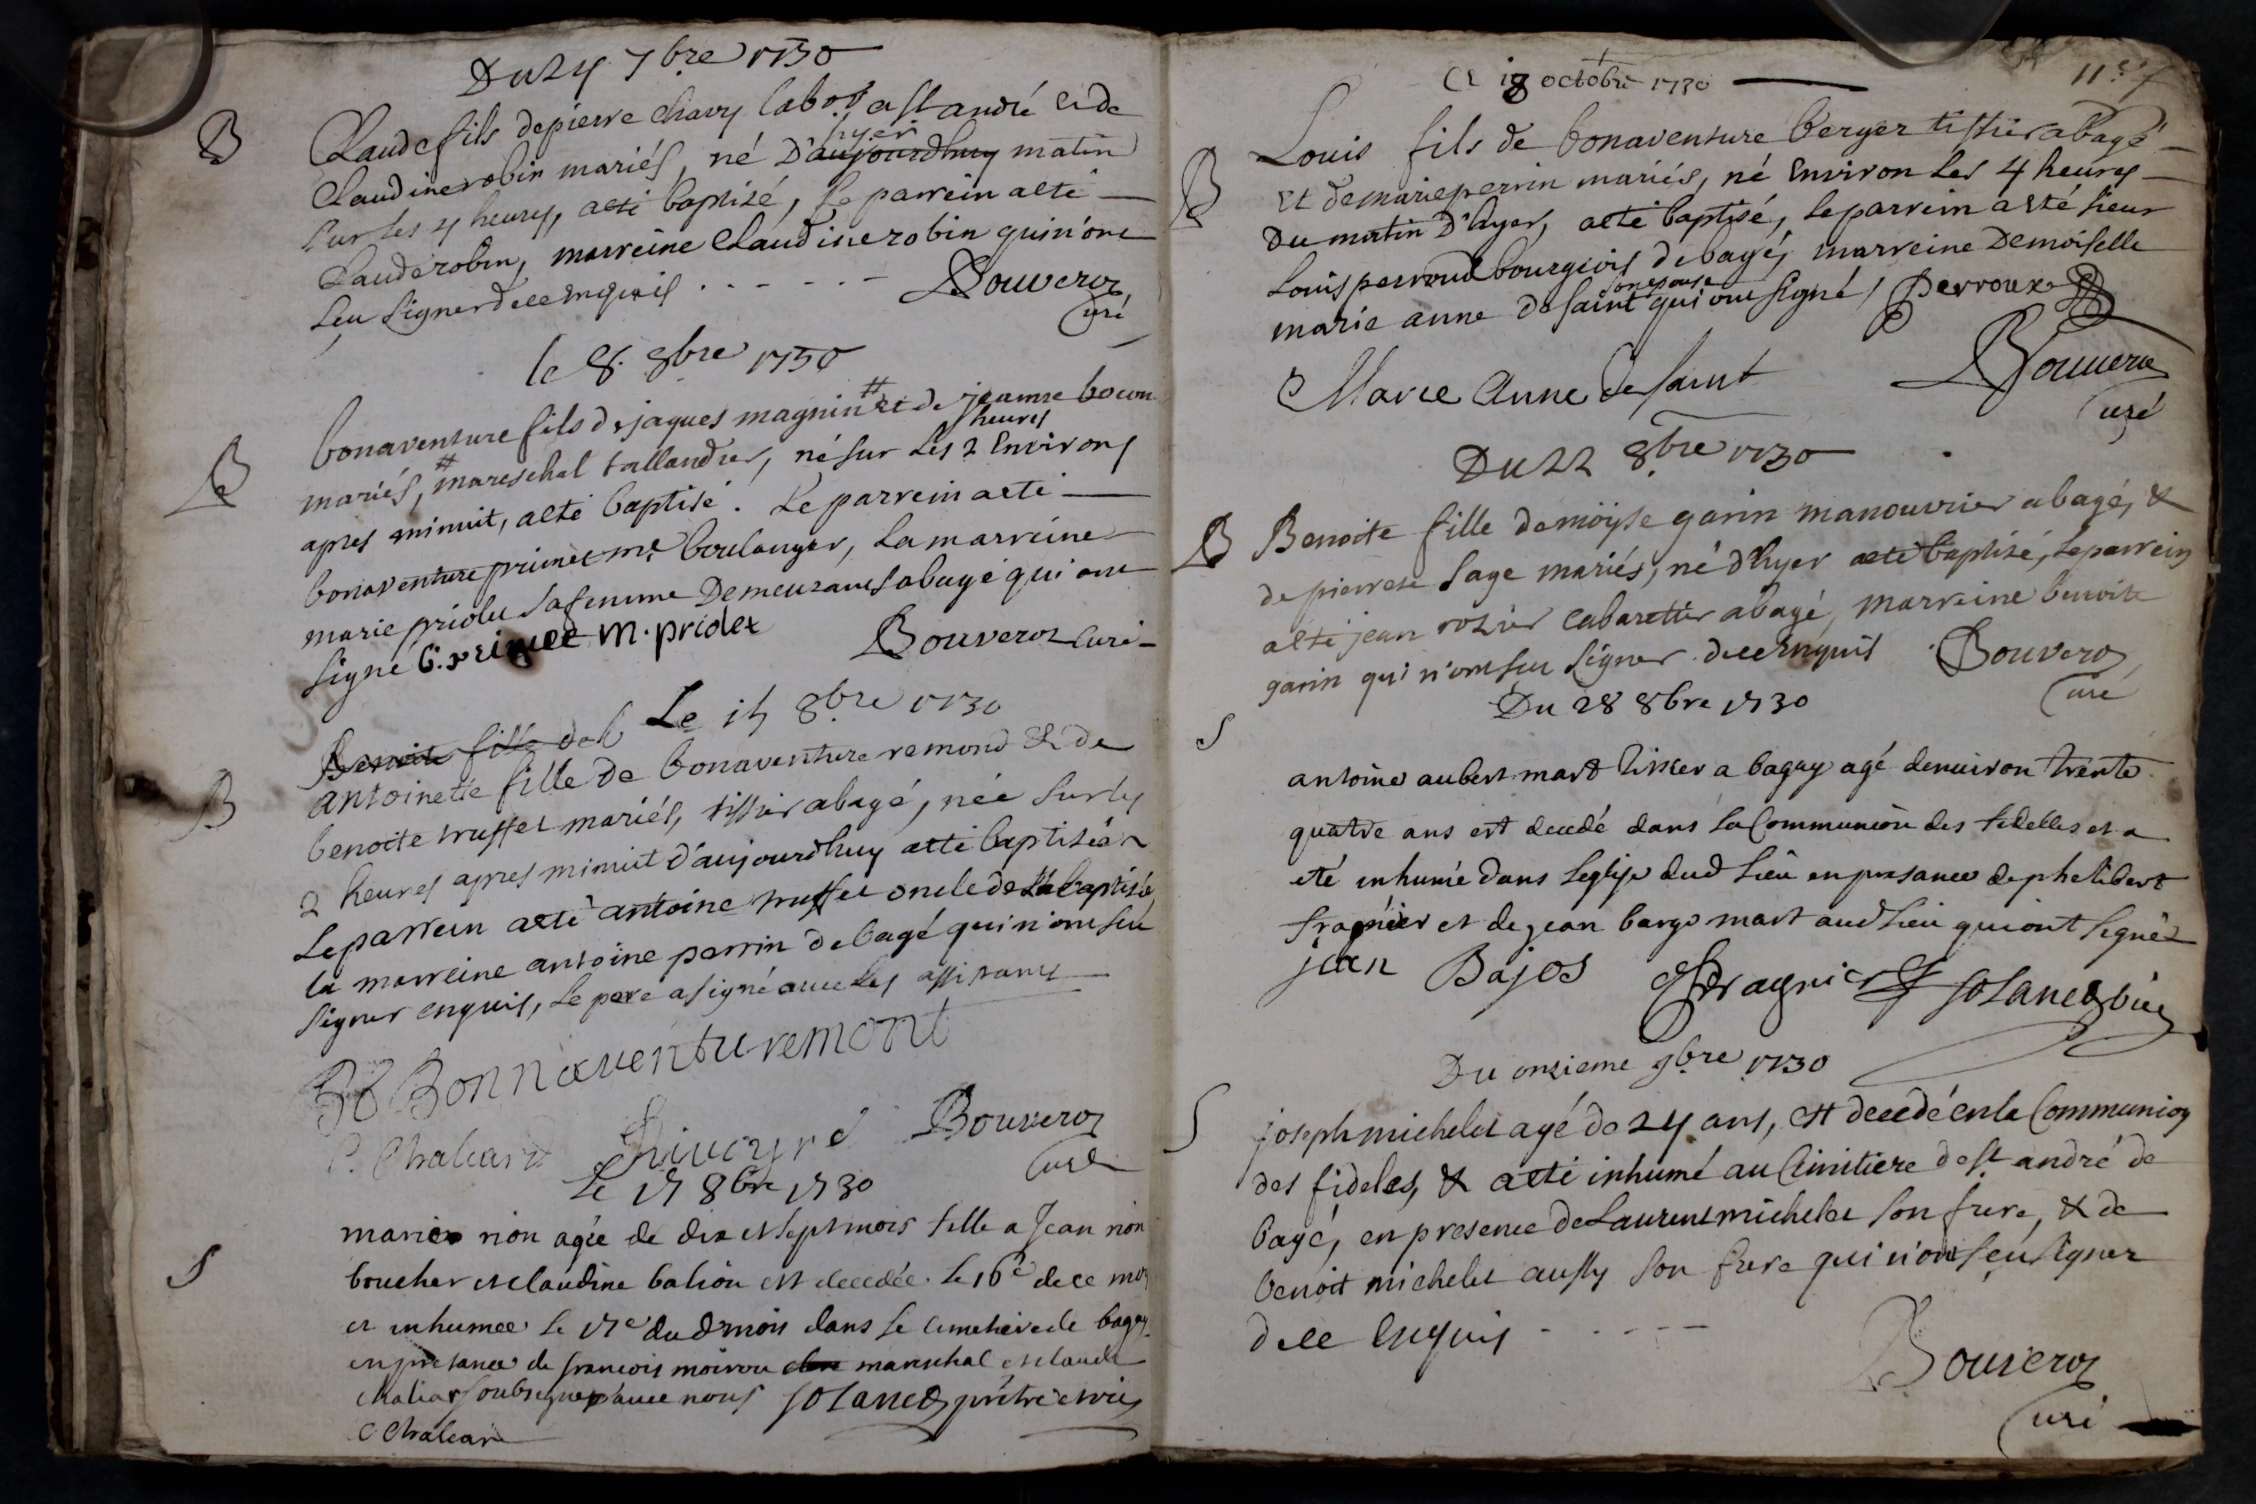 Du 24 7bre 1730
B
Claude fils de pierre Chavy labor a st andré et de
Claudine robin mariés, né D'hyer aujourdhuy matin
sur les 4 heures, aeté baptisé, Le parrein aeté
Claude robin, marreine Claudine robin qui n'ont
sceu signer de ce enquis . - - - - Bouveroz
Curé
le 8. 8bre 1730
B
bonaventure fils de jaques magnin # et de jeanne bocon
mariés, # mareschal taillandier, né sur les 2 heures Environs
apres minuit, aeté baptisé. Le parrein aeté
bonaventure primet me boulanger, La marreine
marie priolet sa femme Demeurants a bagé qui ont
signé b. primet m. priolet Bouveroz Curé
Le 15 8bre 1730
Benoite fille de b
B
antoinette fille de bonaventure remond & de
benoite truffet mariés, tissier a bagé, née sur les
2 heures apres minuit d'aujourdhuy aeté baptisée
Le parrein aeté antoine truffet oncle de la baptisée
la marreine antoine perrin de bagé qui n'ont sceu
signer enquis, Le pere a signé avec les assistants
Bonnaventuremont
C. Chaleard Bouveroz
Curé
Le 17 8bre 1730
S
marie nion agée de dix et sept mois fille a Jean nion
boucher et claudine balion est decedée le 16e de ce mois
et inhumée le 17e dud mois dans le cimetiere de bagey
en presance de francois moirou mareschal et claude
chaliar soubsignes avec nous Solanet prêtre et vic
C Chaleard
Ce 18 octobre 1730
B
Louis fils de bonaventure berger tissier a bagé
Et de marie perrin mariés, né Environ les 4 heures
Du matin D'hyer, aeté baptisé, Le parrein a esté sieur
Louis perroud bourgeois de bagé, marreine Demoiselle
marie anne de saint son epouse qui ont signé Perroux
Marie Anne de Saint Bouveroz
Curé
Du 22 8bre 1730
B
Benoite fille de moÿse garin manouvrier a bagé, &
de pierrete sage mariés, né d'hyer aeté baptisé, Le parrein
aeté jean rozier cabarettier a bagé, marreine benoite
garin qui n'ont sceu signer de ce Enquis Bouveroz
Curé
Du 28 8bre 1730
S
antoine aubert mard tissier a bagey agé denviron trente
quatre ans est decedé dans la Communion des fidelles et a
eté inhumé dans Leglise dud Lieu en presance de phelibert
fragnier et de jean bargo mart aud Lieu qui ont signés
jean Bajos Fragnier Solanet vic
Du onzieme 9bre 1730
S
joseph michelet agé de 24 ans, est decedé en la Communion
des fideles, & aeté inhumé au Cimitiere de st andré de
bagé, en presence de Laurent michelet son frere, & de
benoit michelet aussy son frere qui n'ont sceu signer
de ce Enquis - - - - -
Bouveroz
Curé